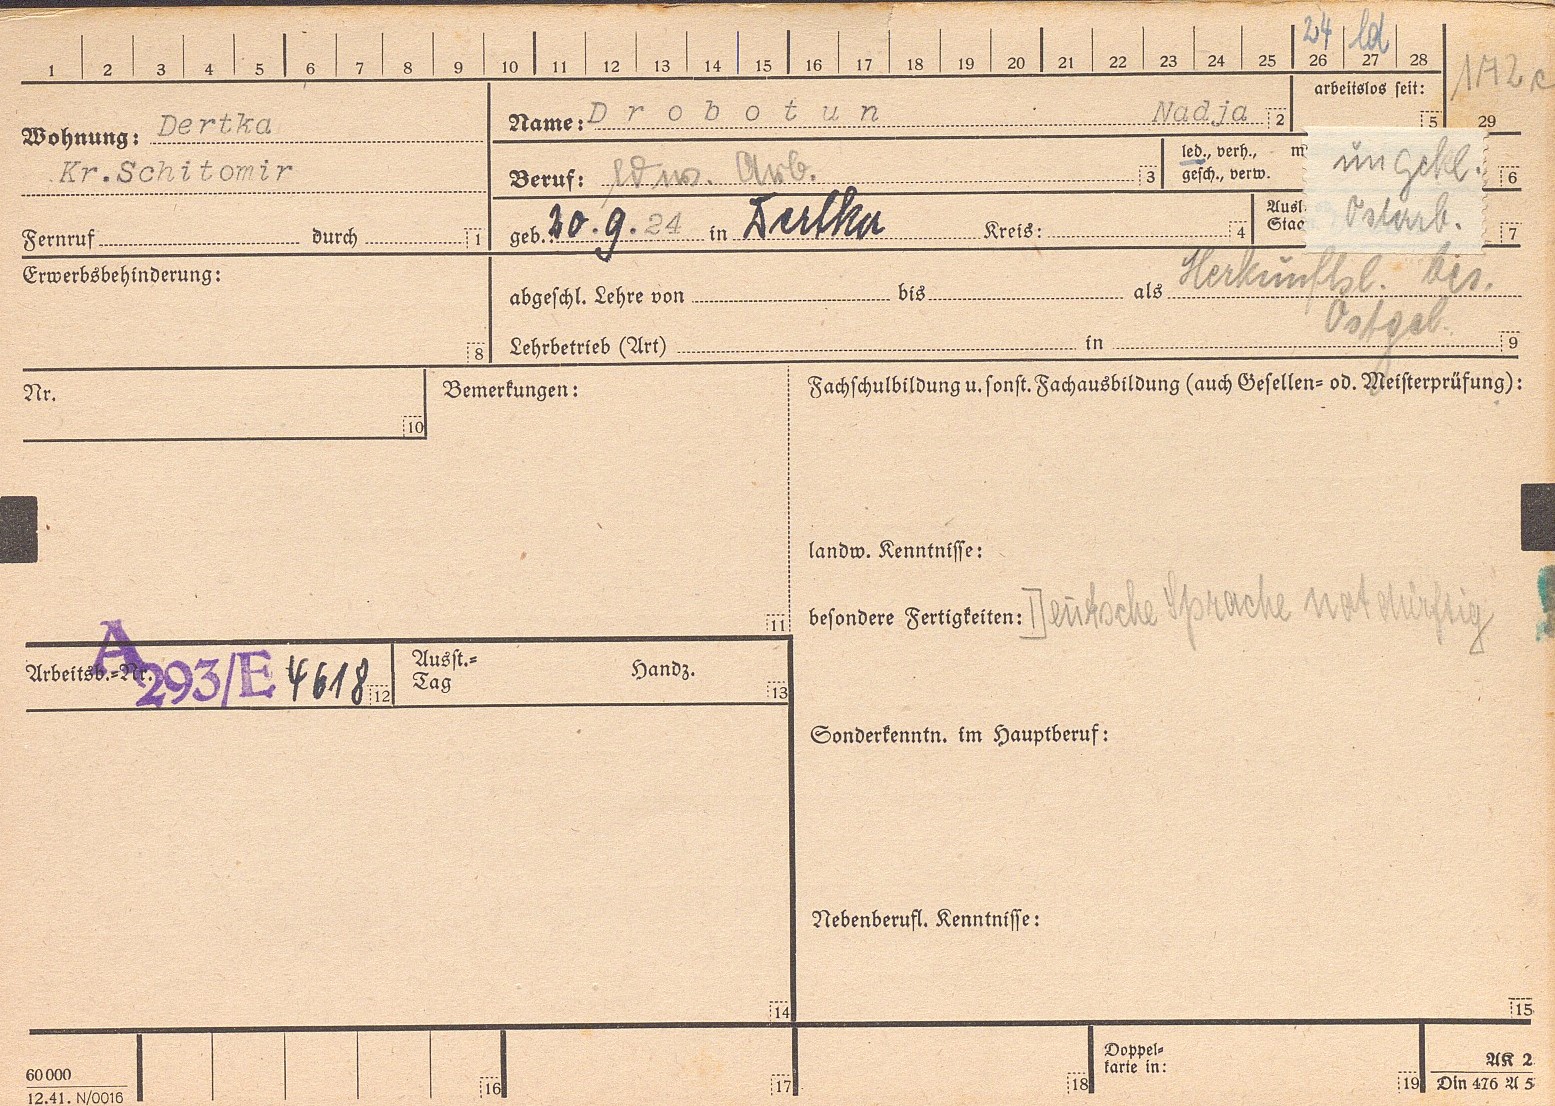 24 ld
1 2 3 4 5 6 7 8 9 10 11 12 13 14 15 16 17 18 19 20 21 22 23 24 25 26 27 28
172 c
arbeitslos seit:
5 29
Wohnung: Dertka
Kr.Schitomir
Fernruf durch 1
Name: Drobotun Nadja 2
Beruf: ldw. Arb. 3
led., verh.,
gesch., verw.
ungekl. 6
Ostarb. 7
geb. 20.9.24 in Dertka Kreis: 4
Ausl.
Erwerbsbehinderung:
8
Herkunftsl. bes.
Ostgeb.
abgeschl. Lehre von bis als
Lehrbetrieb (Art) in 9
Nr.
10
Bemerkungen:
11
Fachschulbildung u. sonst. Fachausbildung (auch Gesellen- od. Meisterprüfung):
landw. Kenntnisse:
besondere Fertigkeiten: Deutsche Sprache notdürftig
Arbeitsb.-Nr. A 293/E 4618 12
Ausst.-
Tag Handz. 13
Sonderkenntn. im Hauptberuf:
Nebenberufl. Kenntnisse:
14 15
60000
12.41. N/0016
16 17 18
Doppel-
karte in:
19
AK 2
Din 476 A 5